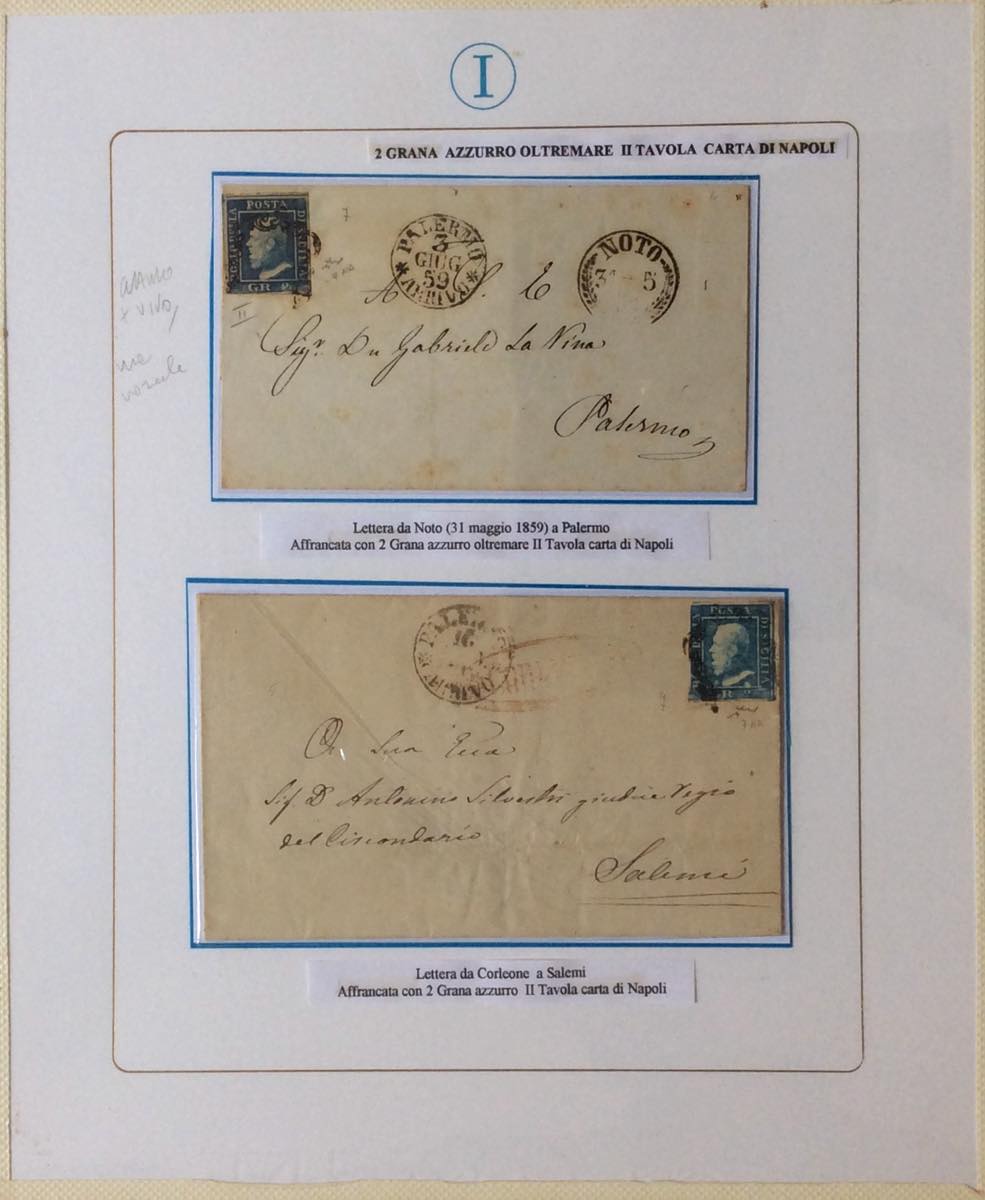 I
2 GRANA AZZURRO OLTREMARE II TAVOLA CARTA DI NAPOLI
POSTA
DI SICILIA
GR 2.
II
7
PALERMO
3
GIUG
59
ARRIVO
NOTO
5
A S. E
Sigr. Dn Gabriele La Nina
Palermo
Lettera da Noto (31 maggio 1859) a Palermo
Affrancata con 2 Grana azzurro oltremare II Tavola carta di Napoli
PALER
ARRIVO
POSTA
DI SICILIA
GR 2.
A Sua Ecca
Sig. D. Antonino Silvestri giudice Regio
del Circondario
Salemi
Lettera da Corleone a Salemi
Affrancata con 2 Grana azzurro II Tavola carta di Napoli